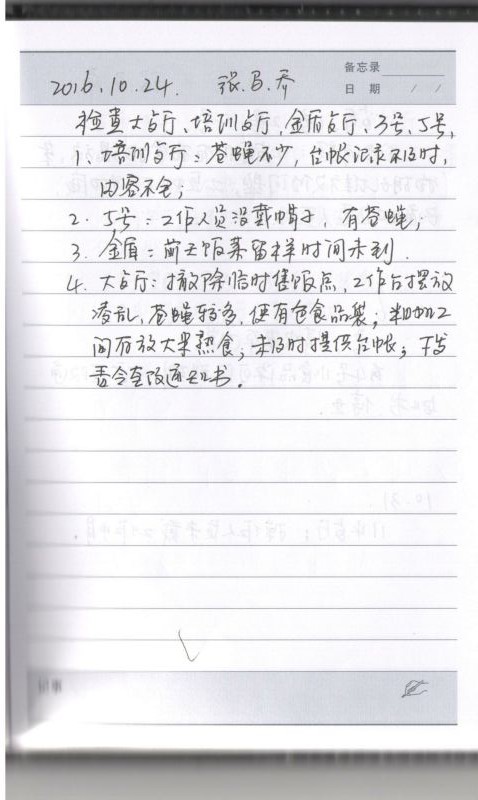 备忘录
日 期 / /
2016.10.24. 张.马.乔
检查大歺厅、培训歺厅、金盾歺厅、3号、5号,
1、培训歺厅:苍蝇不少,台帐记录不及时,
内容不全;
2. 5号:工作人员没戴帽子,有苍蝇;
3. 金盾:前天饭菜留样时间未到.
4. 大歺厅:撤除临时售饭点,工作台摆放
凌乱,苍蝇较多,使有色食品袋;粗加工
间存放大米熟食;未及时提供台帐;下发
责令查改通知书。